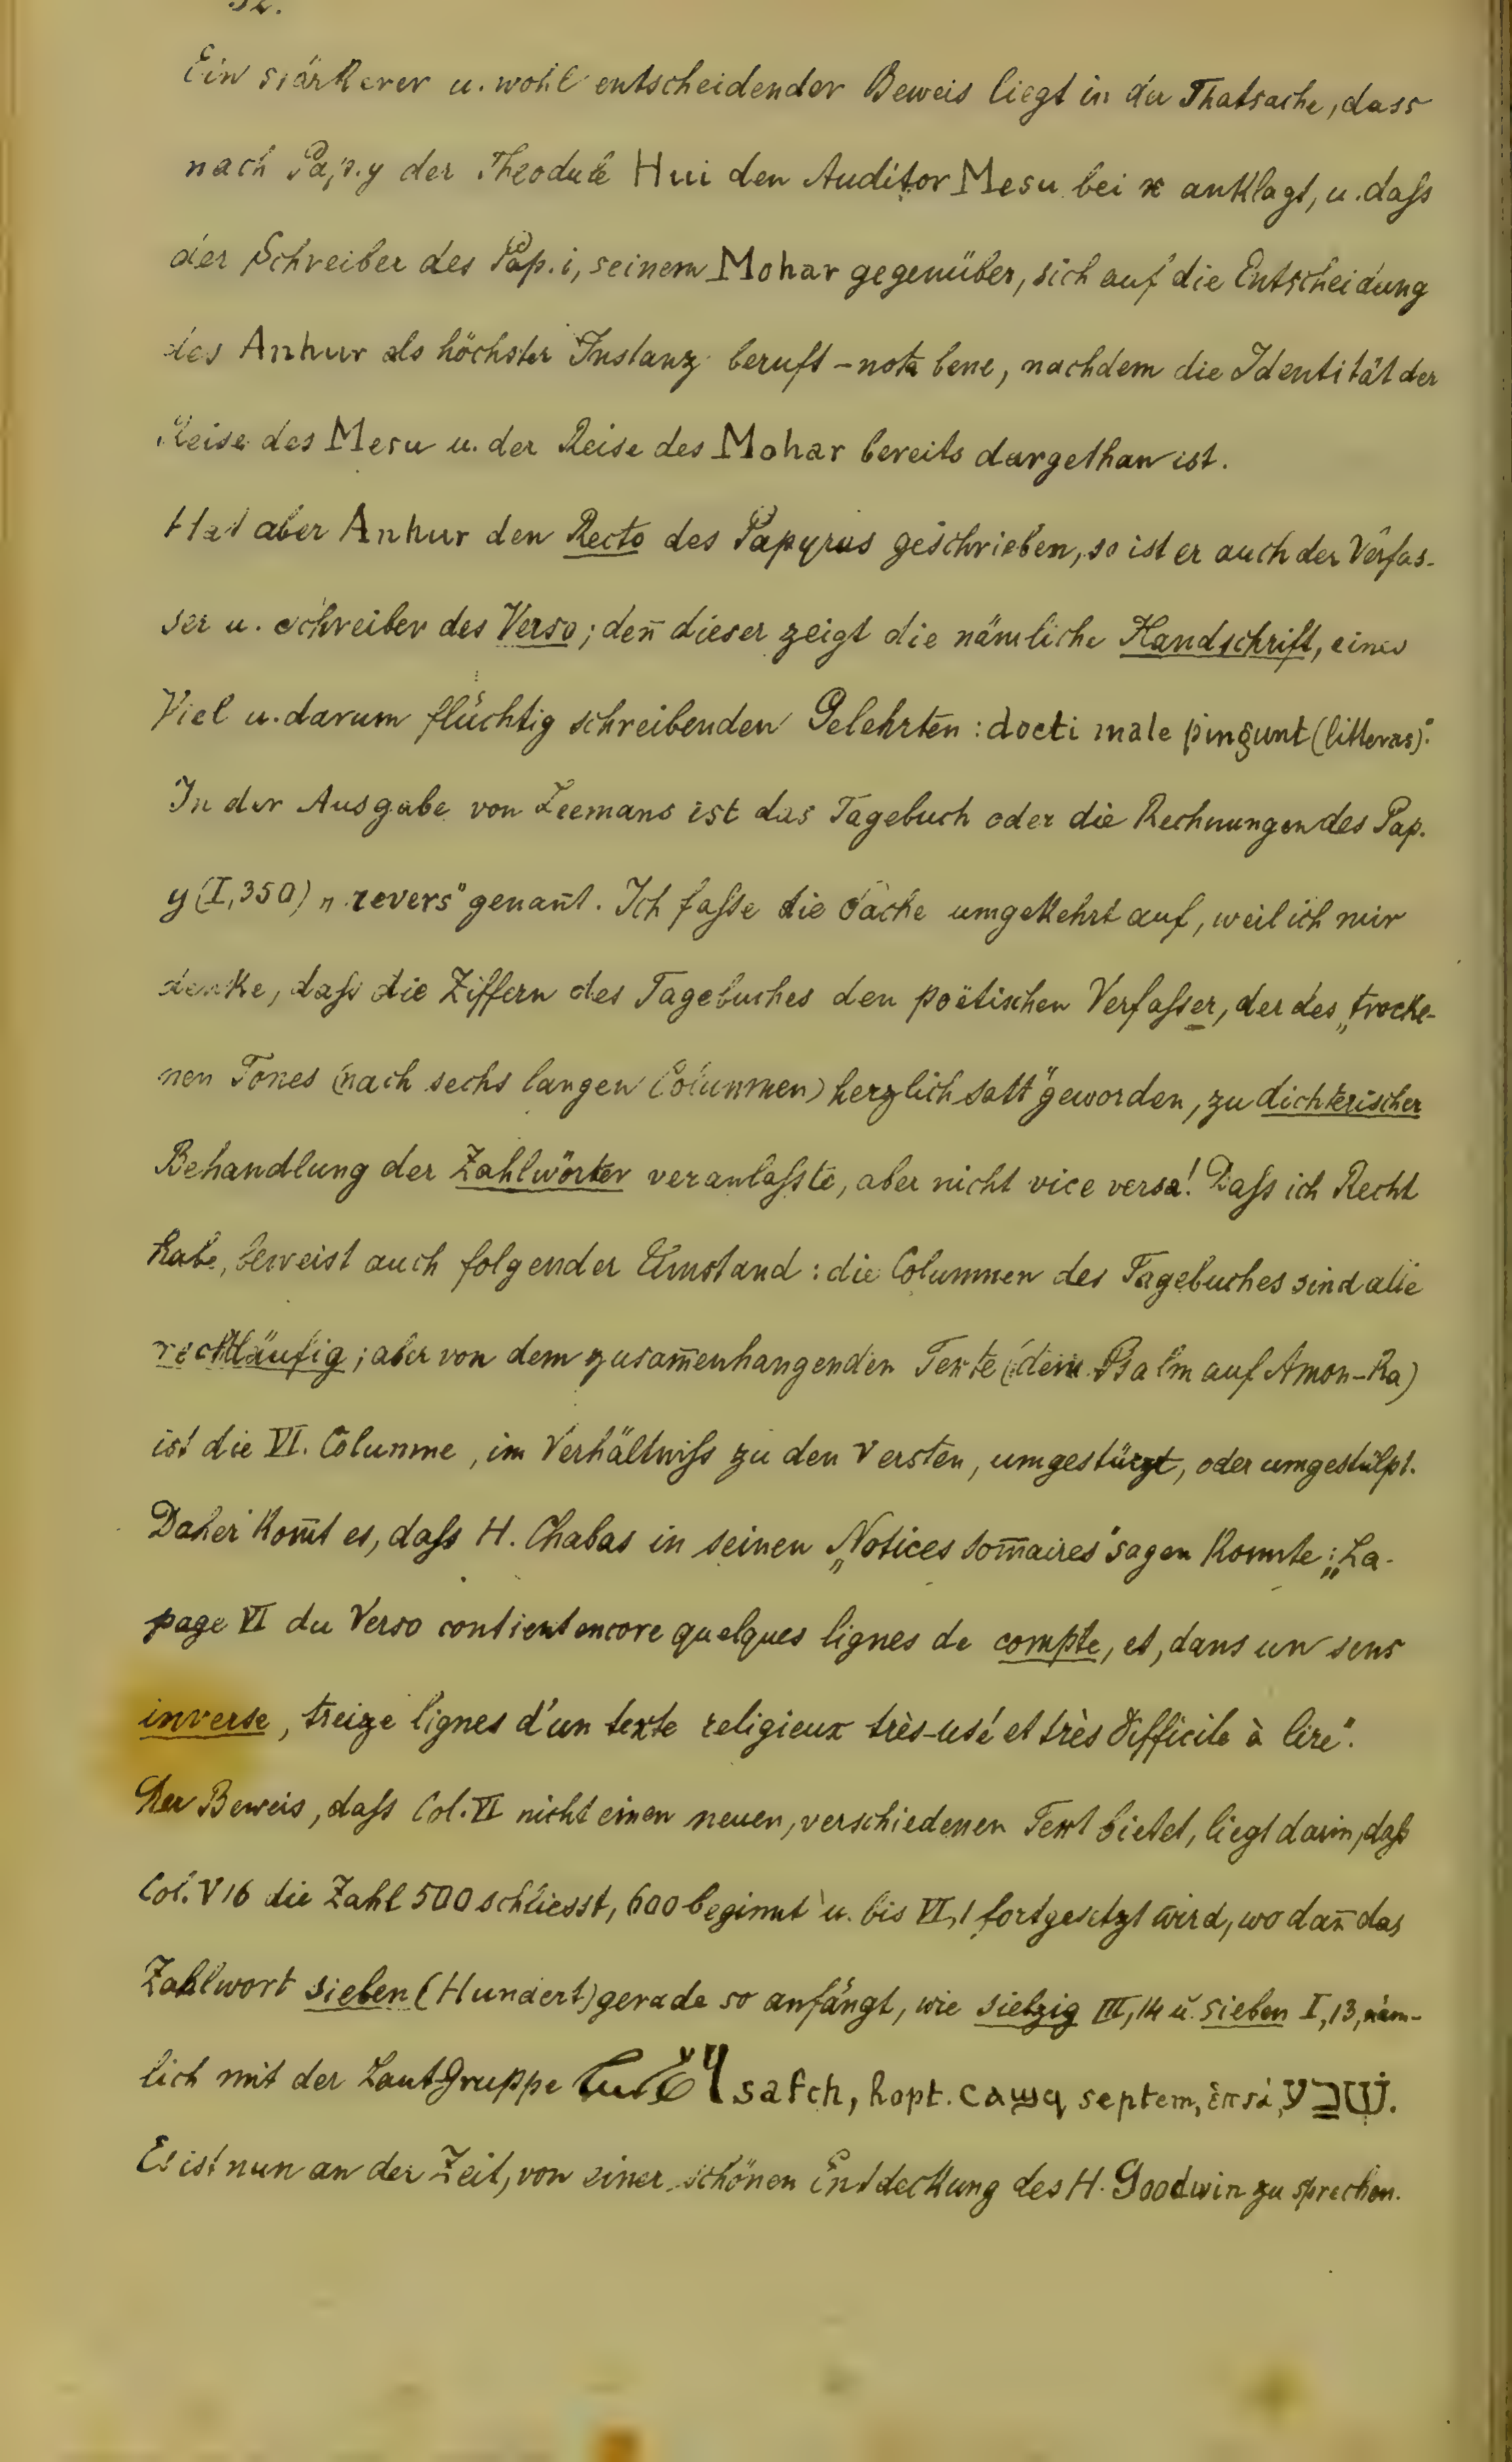 32.
Ein stärkerer u. wohl entscheidender Beweis liegt in der Thatsache, dass
nach Pap. y der Theodule Hui den Auditor Mesu bei x anklagt, u. daſs
der Schreiber des Pap. i, seinem Mohar gegenüber, sich auf die Entscheidung
des Anhur als höchster Instanz beruft – nota bene, nachdem die Identität der
Reise des Mesu u. der Reise des Mohar bereits dargethan ist.
Hat aber Anhur den Recto des Papyrus geschrieben, so ist er auch der Verfas-
ser u. Schreiber des Verso; deñ dieser zeigt die nämliche Handschrift, eines
Viel u. darum flüchtig schreibenden Gelehrten: docti male pingunt (litteras).“
In der Ausgabe von Leemans ist das Tagebuch oder die Rechnungen des Pap.
y (I, 350) „revers“ genañt. Ich faſse die Sache umgekehrt auf, weil ich mir
denke, daſs die Ziffern des Tagebuches den poëtischen Verfaſser, der des „trocke-
nen Tones (nach sechs langen Columnen) herzlich satt“ geworden, zu dichterischer
Behandlung der Zahlwörter veranlaſste, aber nicht vice versa! Daſs ich Recht
habe, beweist auch folgender Umstand: die Columnen des Tagebuches sind alle
rechtläufig; aber von dem zusam̄enhangenden Texte (dem Psalm auf Amon-Ra)
ist die VI. Columne, im Verhältniſs zu den V ersten, umgestürzt, oder umgestülpt.
Daher kom̄t es, daſs H. Chabas in seinen „Notices som̄aires“ sagen konnte: „La
page VI du Verso contient encore quelques lignes de compte, et, dans un sens
inverse, treize lignes d'un texte religieux très-usé et très difficile à lire“.
Der Beweis, daſs Col. VI nicht einen neuen, verschiedenen Text bietet, liegt darin, daſs
Col. V 16 die Zahl 500 schliesst, 600 beginnt u. bis VI, 1 fortgesetzt wird, wo dañ das
Zahlwort sieben (Hundert) gerade so anfängt, wie siebzig III, 14 u. sieben I, 13, näm-
lich mit der Lautgruppe safch, kopt. ⲥⲁϣϥ septem, ἑπτά, שֶׁבַע.
Es ist nun an der Zeit, von einer schönen Entdeckung des H. Goodwin zu sprechen.